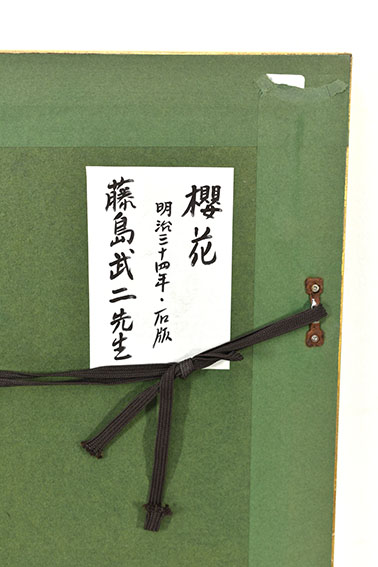 櫻花
明治三十四年・石版
藤島武二先生